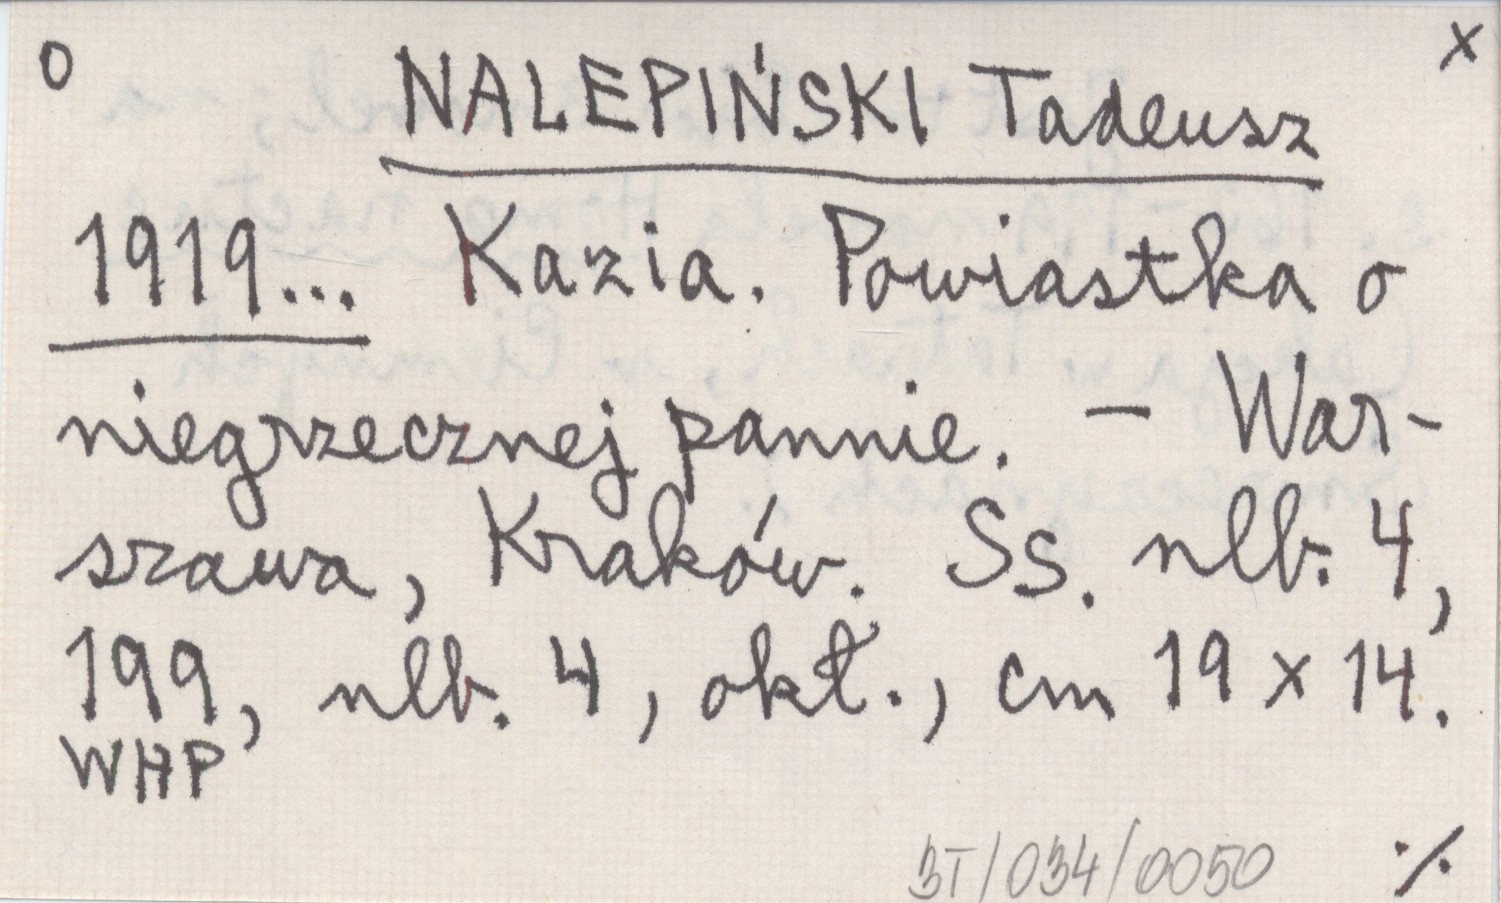 O NALEPIŃSKI Tadeusz x
1919... Kazia. Powiastka o
niegrzecznej pannie. – War-
szawa, Kraków. Ss. nlb. 4,
199, nlb. 4, okł., cm 19 x 14.
WHP
3T/034/0050 ./.